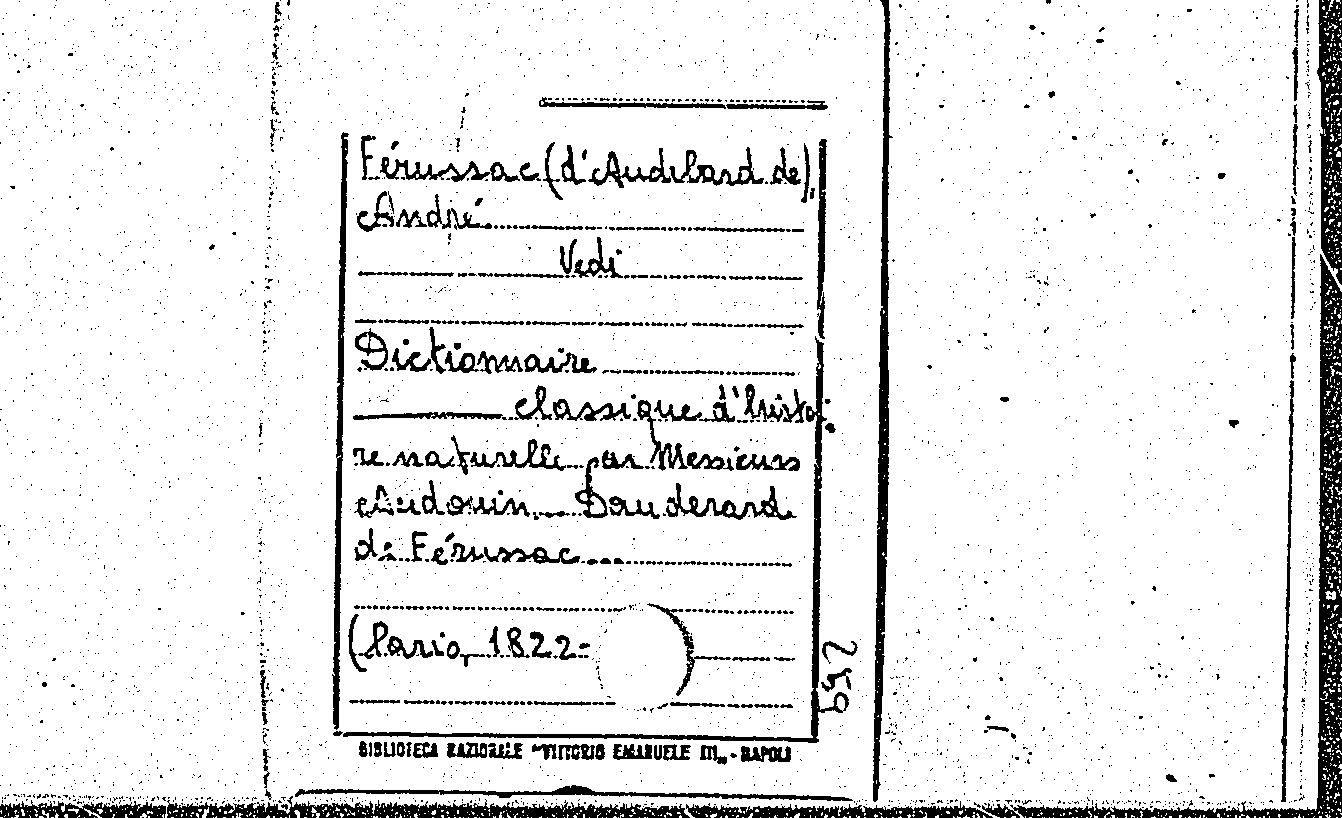 Férussac (d'Audebard de),
André.
Vedi
Dictionnaire
classique d'histoi-
re naturelle par Messieurs
Audouin, Dauderard
de Férussac...
(Paris, 1822-
592
BIBLIOTECA NAZIONALE "VITTORIO EMANUELE III" - NAPOLI